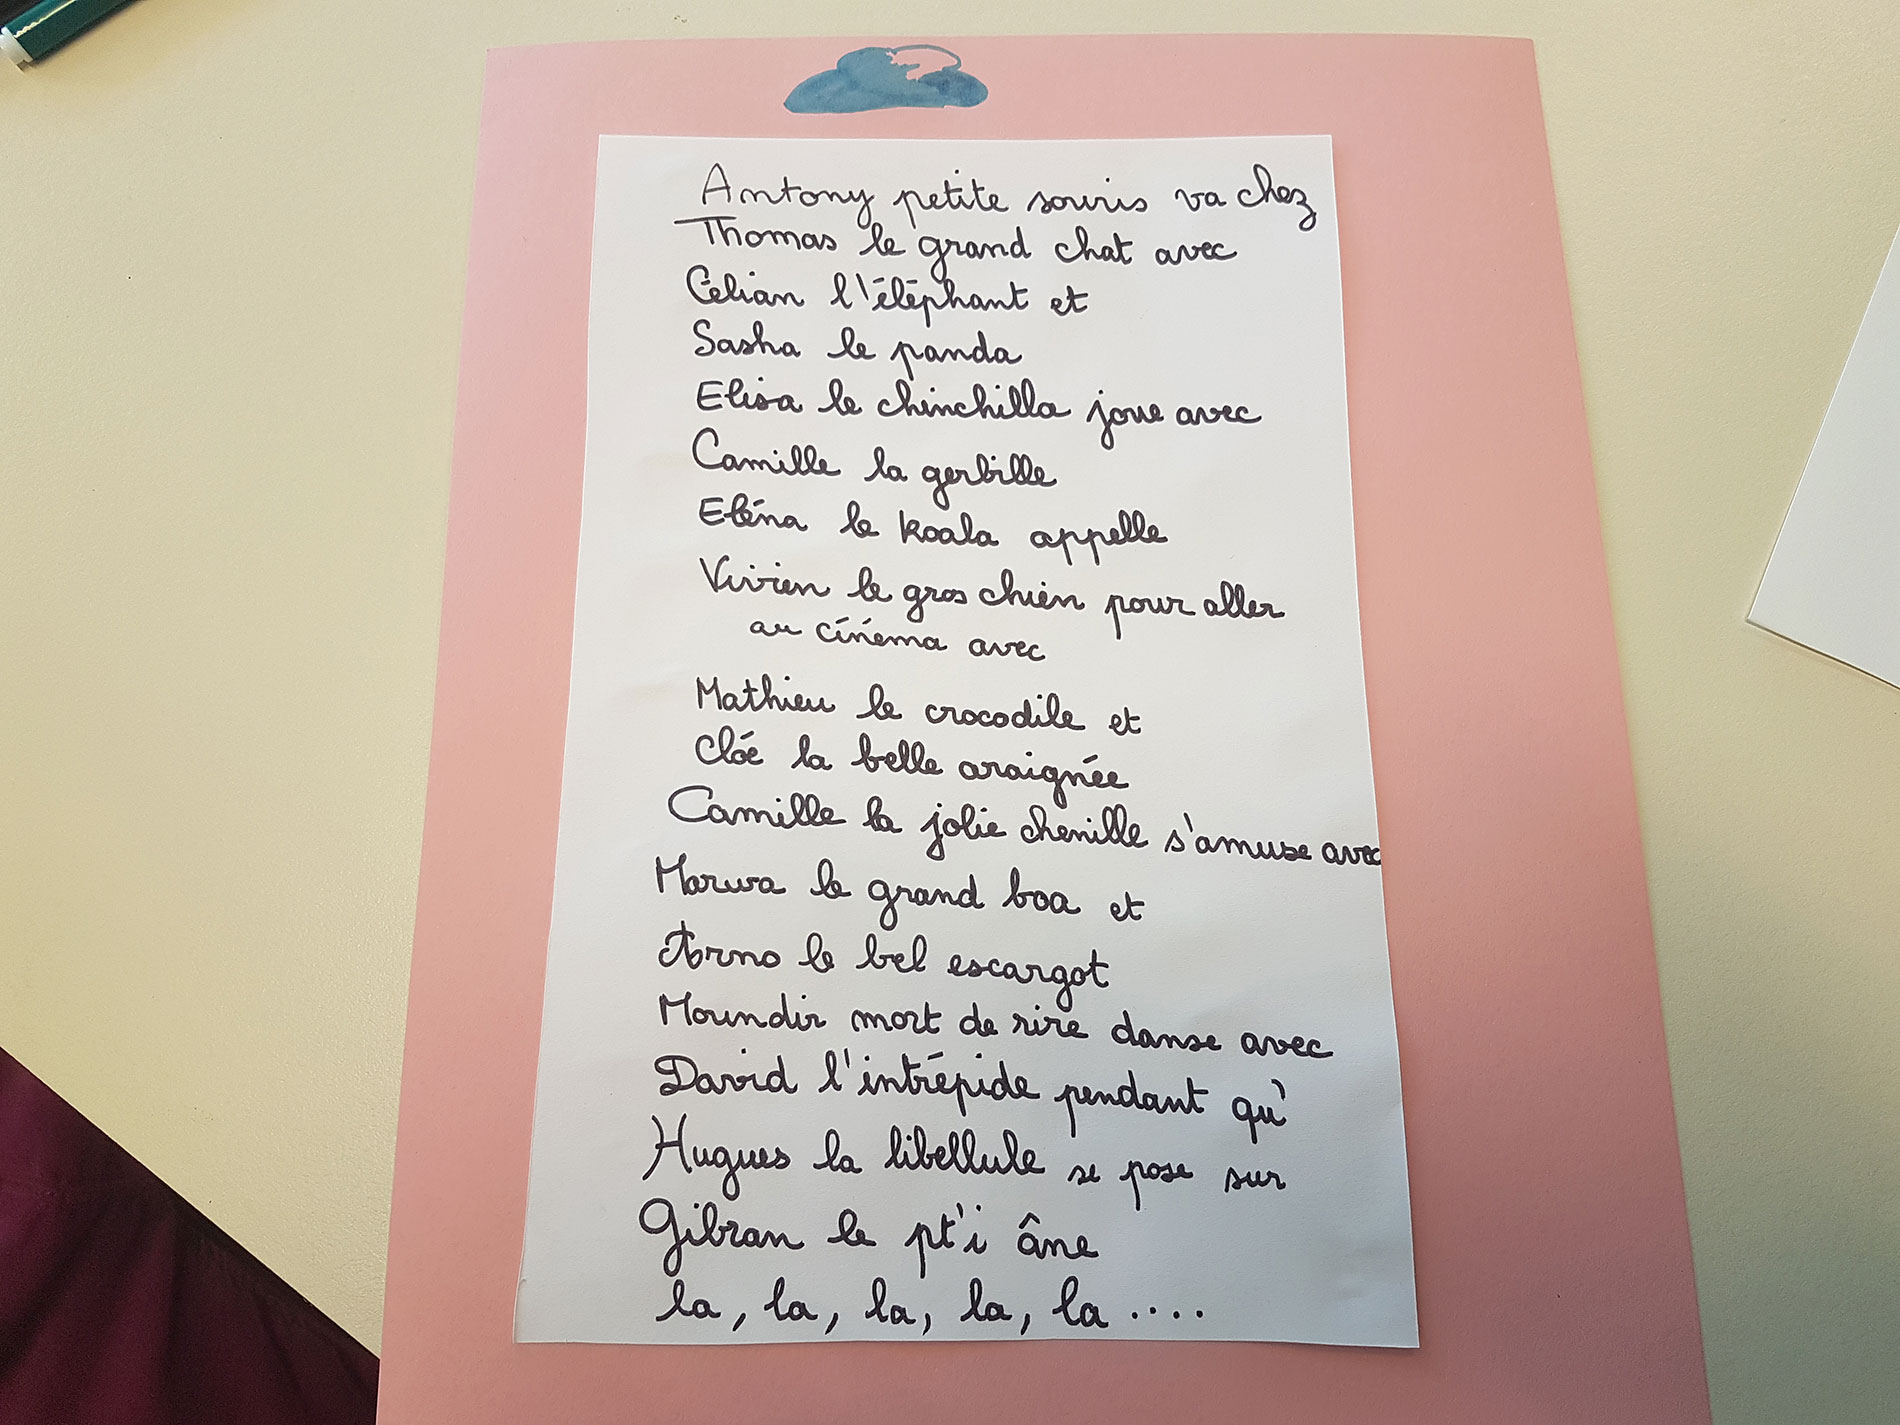 Antony petite souris va chez
Thomas le grand chat avec
Célian l'éléphant et
Sasha le panda
Elisa le chinchilla joue avec
Camille la gerbille
Eléna le koala appelle
Vivien le gros chien pour aller
au cinéma avec
Mathieu le crocodile et
Cloé la belle araignée
Camille la jolie chenille s'amuse avec
Marwa le grand boa et
Arno le bel escargot
Moundir mort de rire danse avec
David l'intrépide pendant qu'
Hugues la libellule se pose sur
Gibran le pt'i âne
la, la, la, la, la ....